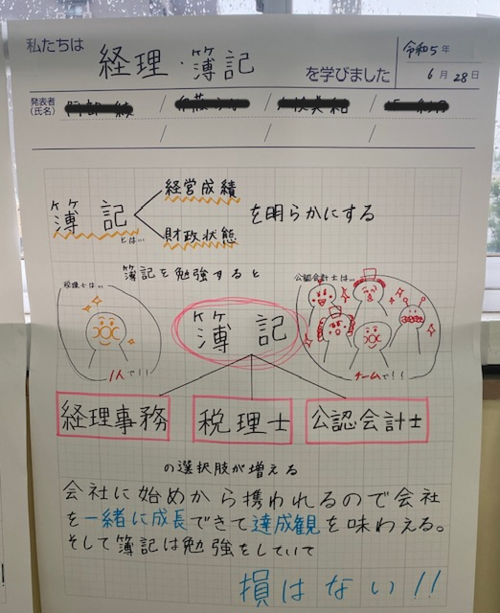 私たちは 経理・簿記 を学びました
令和5年
6月28日
発表者
(氏名)
簿記とは…
経営成績
財政状態
を明らかにする
簿記を勉強すると
税理士は…
1人で!!
簿記
公認会計士は…
チームで!!
経理事務 税理士 公認会計士
の選択肢が増える
会社に始めから携われるので会社
を一緒に成長できて達成観を味わえる。
そして簿記は勉強をしていて
損はない!!